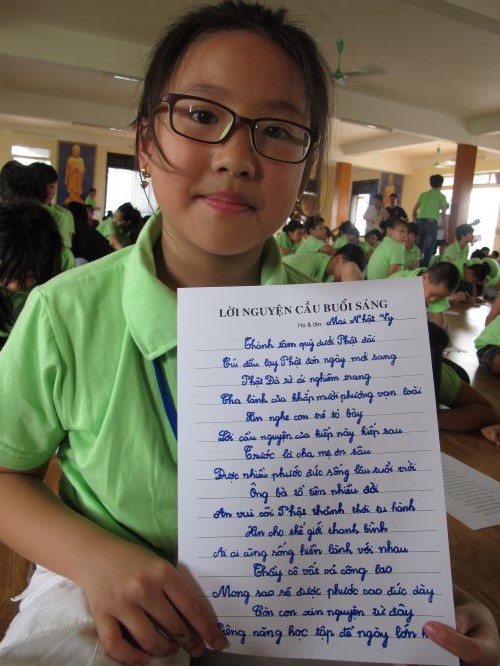 LỜI NGUYỆN CẦU BUỔI SÁNG
Họ & tên: Mai Nhật Vy
Thành tâm quỳ dưới Phật đài
Cúi đầu lạy Phật đón ngày mới sang
Phật Đà từ ái nghiêm trang
Cha lành của khắp mười phương vạn loài
Xin nghe con trẻ tỏ bày
Lời cầu nguyện của kiếp này kiếp sau
Trước là cha mẹ ơn sâu
Được nhiều phước đức sống lâu suốt đời
Ông bà tổ tiên nhiều đời
An vui cõi Phật thảnh thơi tu hành
Xin cho thế giới thanh bình
Ai ai cũng sống hiền lành với nhau
Thầy cô vất vả công lao
Mong sao sẽ được phước cao đức dày
Còn con xin nguyện từ đây
Siêng năng học tập để ngày lớn